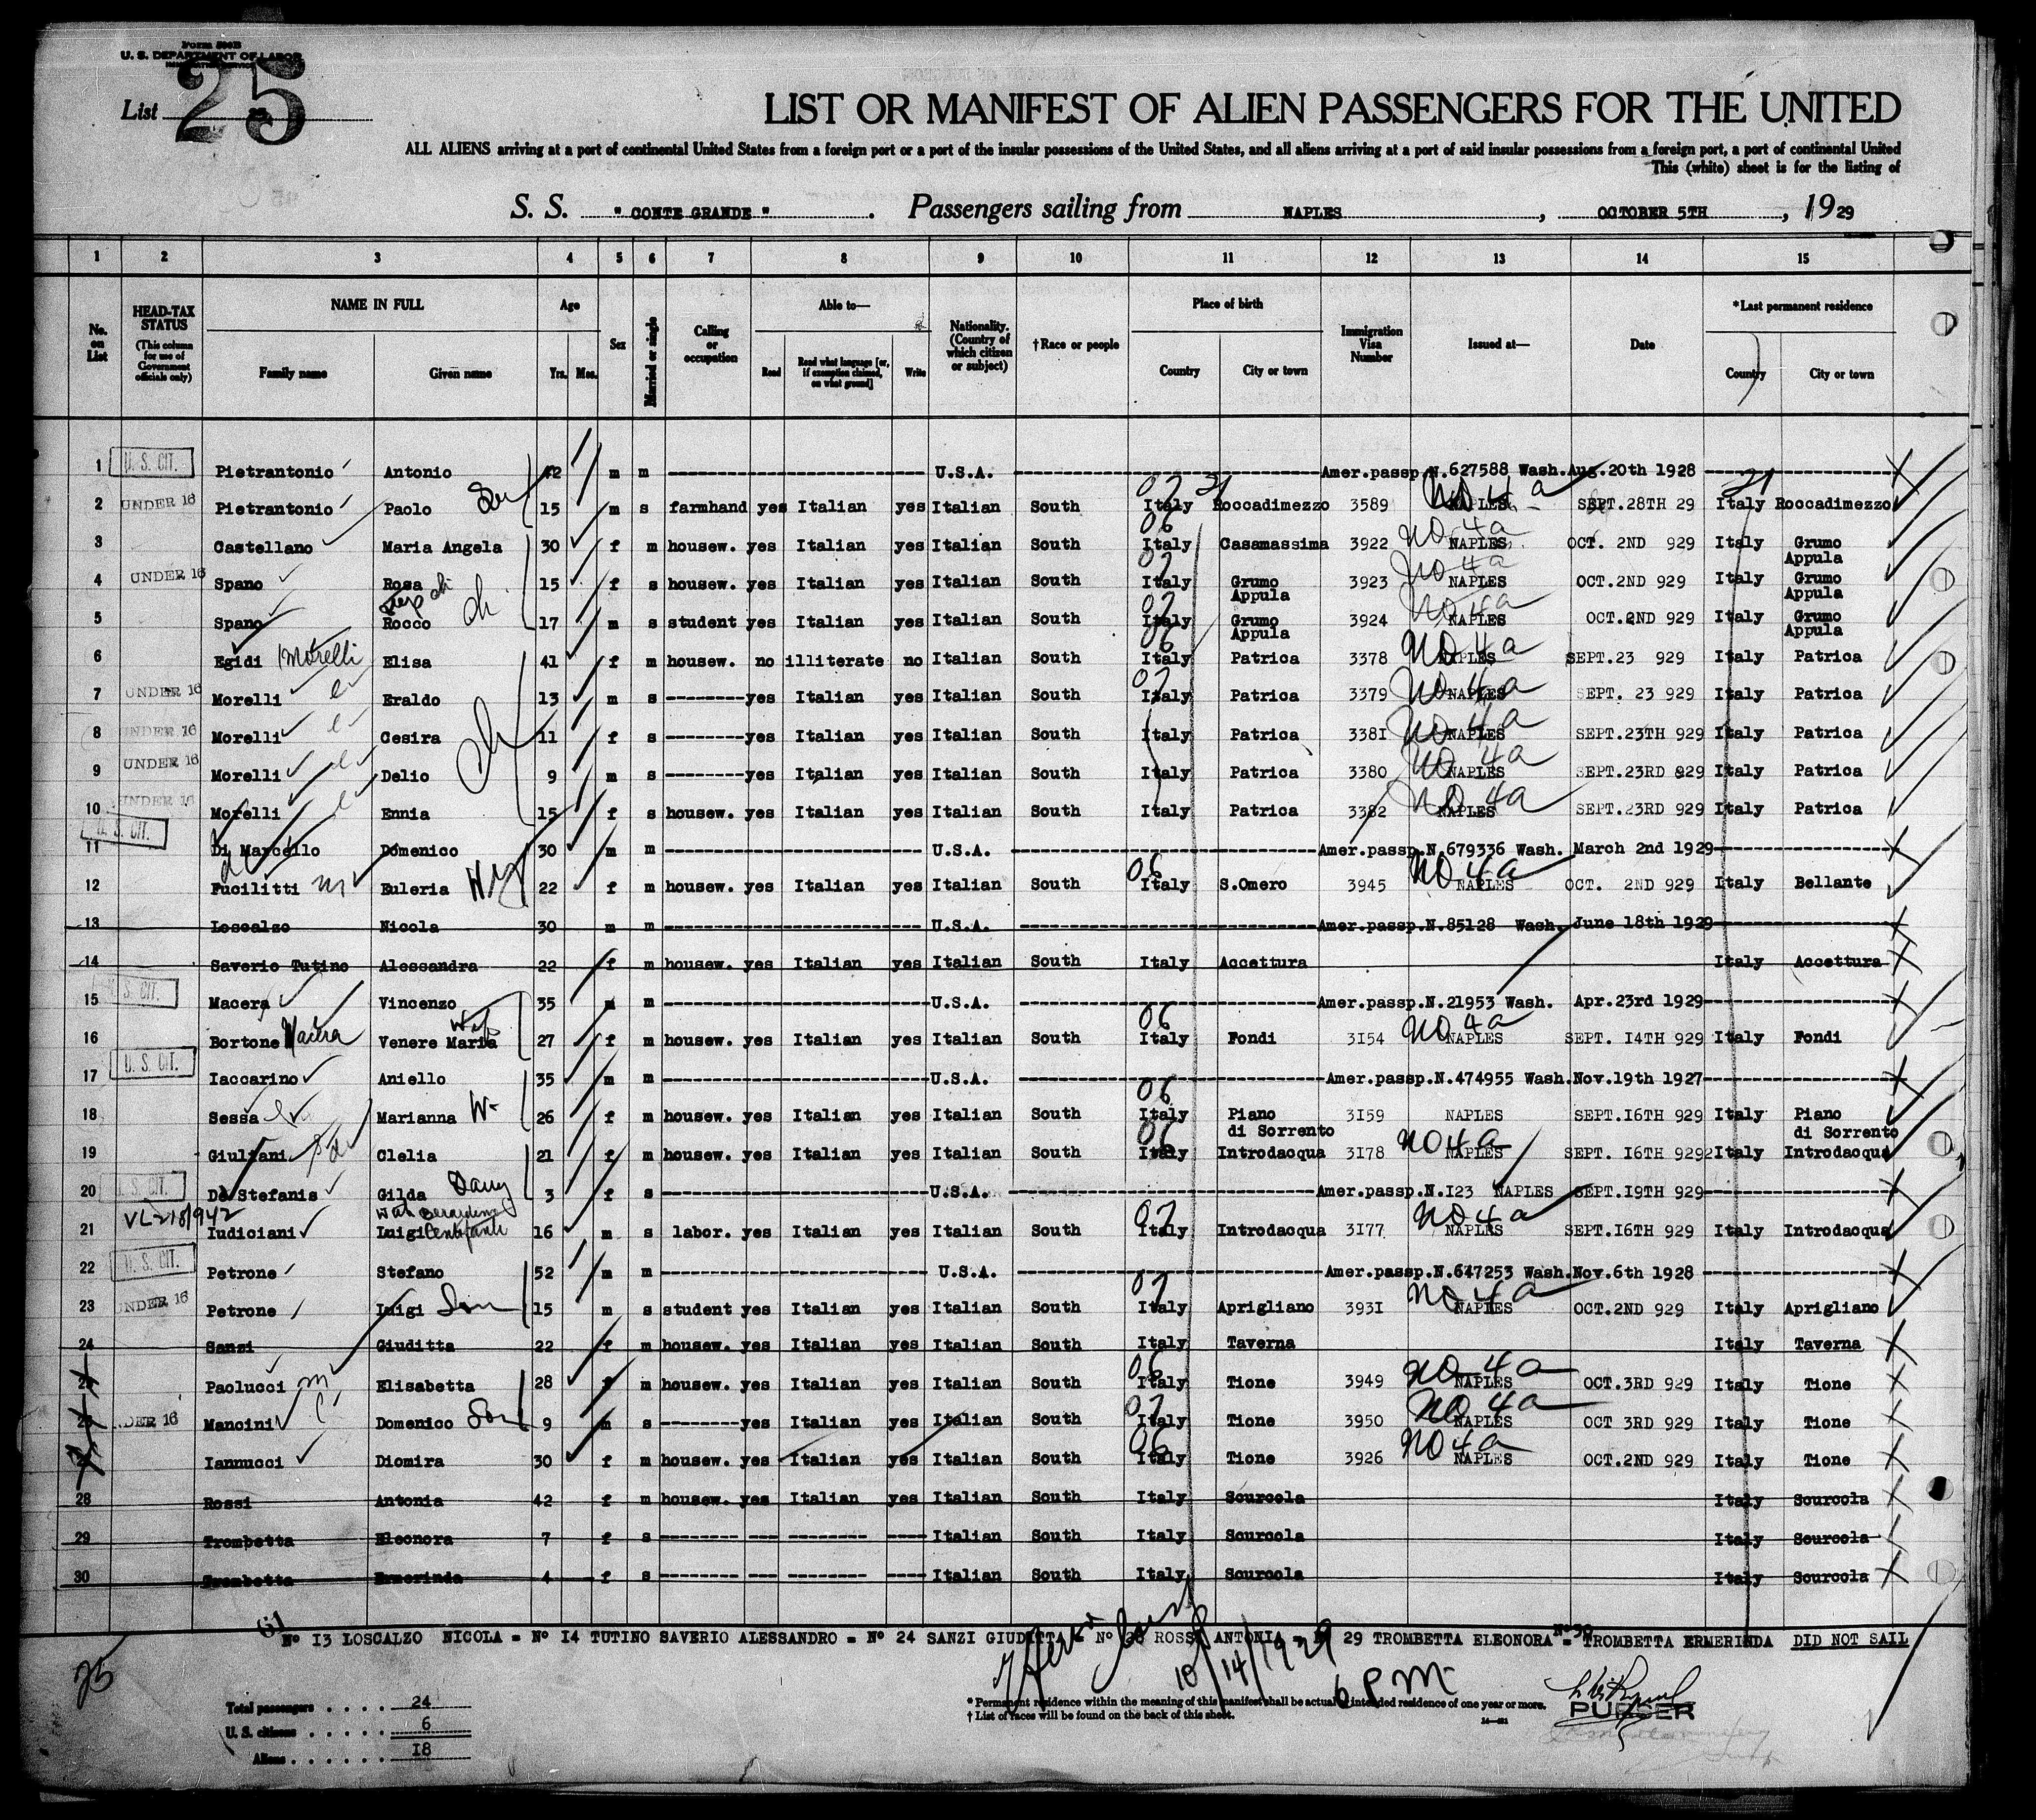 Form 500B
U. S. DEPARTMENT OF LABOR
List 25
LIST OR MANIFEST OF ALIEN PASSENGERS FOR THE UNITED
ALL ALIENS arriving at a port of continental United States from a foreign port or a port of the insular possessions of the United States, and all aliens arriving at a port of said insular possessions from a foreign port, a port of continental United
This (white) sheet is for the listing of
S. S. " CONTE GRANDE " . Passengers sailing from NAPLES , OCTOBER 5TH , 1929
1 2 3 4 5 6 7 8 9 10 11 12 13 14 15
No. on List HEAD-TAX STATUS (This column for use of Government officials only) NAME IN FULL Family name Given name Age Yrs. Mos. Sex Married or single Calling or occupation Able to— Read Read what language [or, if exemption claimed, on what ground] Write Nationality. (Country of which citizen or subject) †Race or people Place of birth Country City or town Immigration Visa Number Issued at— Date *Last permanent residence Country City or town
1 U. S. CIT. Pietrantonio Antonio 42 m m U.S.A. Amer.passp.N.627588 Wash.Aug.20th 1928
2 UNDER 16 Pietrantonio Paolo Son 15 m s farmhand yes Italian yes Italian South 07 Italy 21 Roccadimezzo 3589 NO 4a NAPLES SEPT.28TH 29 21 Italy Roccadimezzo
3 Castellano Maria Angela 30 f m housew. yes Italian yes Italian South 06 Italy Casamassima 3922 NO 4a NAPLES OCT. 2ND 929 Italy Grumo Appula
4 UNDER 16 Spano Rosa ch 15 f s housew. yes Italian yes Italian South 07 Italy Grumo Appula 3923 NO 4a NAPLES OCT.2ND 929 Italy Grumo Appula
5 Spano Rocco ch 17 m s student yes Italian yes Italian South 07 Italy Grumo Appula 3924 NO 4a NAPLES OCT.2ND 929 Italy Grumo Appula
6 Egidi Morelli Elisa 41 f m housew. no illiterate no Italian South 06 Italy Patrica 3378 NO 4a NAPLES SEPT.23 929 Italy Patrica
7 UNDER 16 Morelli Eraldo 13 m s yes Italian yes Italian South 07 Italy Patrica 3379 NO 4a NAPLES SEPT. 23 929 Italy Patrica
8 UNDER 16 Morelli Cesira ch 11 f s yes Italian yes Italian South Italy Patrica 3381 NO 4a NAPLES SEPT.23TH 929 Italy Patrica
9 UNDER 16 Morelli Delio 9 m s yes Italian yes Italian South Italy Patrica 3380 NO 4a NAPLES SEPT.23RD 929 Italy Patrica
10 UNDER 16 Morelli Ennia 15 f s housew. yes Italian yes Italian South Italy Patrica 3382 NO 4a NAPLES SEPT.23RD 929 Italy Patrica
11 U. S. CIT. Di Marcello Domenico 30 m m U.S.A. Amer.passp.N.679336 Wash. March 2nd 1929
12 Fucilitti Euleria 22 f m housew. yes Italian yes Italian South 06 Italy S.Omero 3945 NO 4a NAPLES OCT. 2ND 929 Italy Bellante
13 Loscalzo Nicola 30 m m U.S.A. Amer.passp.N.85128 Wash. June 18th 1929
14 Saverio Tutino Alessandra 22 f m housew. yes Italian yes Italian South Italy Accettura Italy Accettura
15 U. S. CIT. Macera Vincenzo 35 m m U.S.A. Amer.passp.N.21953 Wash. Apr.23rd 1929
16 Bortone Macera Venere Maria Wife 27 f m housew. yes Italian yes Italian South 06 Italy Fondi 3154 NO 4a NAPLES SEPT. 14TH 929 Italy Fondi
17 U. S. CIT. Iaccarino Aniello 35 m m U.S.A. Amer.passp.N.474955 Wash.Nov.19th 1927
18 Sessa Marianna W- 26 f m housew. yes Italian yes Italian South 06 Italy Piano di Sorrento 3159 NAPLES SEPT.16TH 929 Italy Piano di Sorrento
19 Giuliani Clelia 21 f m housew. yes Italian yes Italian South 06 Italy Introdacqua 3178 NO 4a NAPLES SEPT. 16TH 9292 Italy Introdacqua
20 U. S. CIT. De Stefanis Gilda 3 f s U.S.A. Amer.passp.N.123 NAPLES SEPT.19TH 929
21 Iudiciani Luigi 16 m s labor. yes Italian yes Italian South 07 Italy Introdacqua 3177 NO 4a NAPLES SEPT.16TH 929 Italy Introdacqua
22 U. S. CIT. Petrone Stefano 52 m m U.S.A. Amer.passp.N.647253 Wash.Nov.6th 1928
23 UNDER 16 Petrone Luigi Son 15 m s student yes Italian yes Italian South 07 Italy Aprigliano 3931 NO 4a NAPLES OCT.2ND 929 Italy Aprigliano
24 Sanzi Giuditta 22 f m housew. yes Italian yes Italian South Italy Taverna Italy Taverna
25 Paolucci m Elisabetta 28 f m housew. yes Italian yes Italian South 06 Italy Tione 3949 NO 4a NAPLES OCT.3RD 929 Italy Tione
26 UNDER 16 Mancini Domenico Son 9 m s yes Italian yes Italian South 07 Italy Tione 3950 NO 4a NAPLES OCT 3RD 929 Italy Tione
27 Iannucci Diomira 30 f m housew. yes Italian yes Italian South 06 Italy Tione 3926 NO 4a NAPLES OCT.2ND 929 Italy Tione
28 Rossi Antonia 42 f m housew. yes Italian yes Italian South Italy Scurcola Italy Scurcola
29 Trombetta Eleonora 7 f s Italian South Italy Scurcola Italy Scurcola
30 Trombetta Ermerinda 4 f s Italian South Italy Scurcola Italy Scurcola
Nº 13 LOSCALZO NICOLA = Nº 14 TUTINO SAVERIO ALESSANDRO = Nº 24 SANZI GIUDITTA = Nº 28 ROSSI ANTONIA = Nº 29 TROMBETTA ELEONORA = Nº 30 TROMBETTA ERMERINDA DID NOT SAIL
25
10/14/1929
6 PM
Total passengers . . . . 24
U. S. citizens . . . . . 6
Aliens . . . . . . 18
* Permanent residence within the meaning of this manifest shall be actual or intended residence of one year or more.
† List of races will be found on the back of this sheet.
PURSER